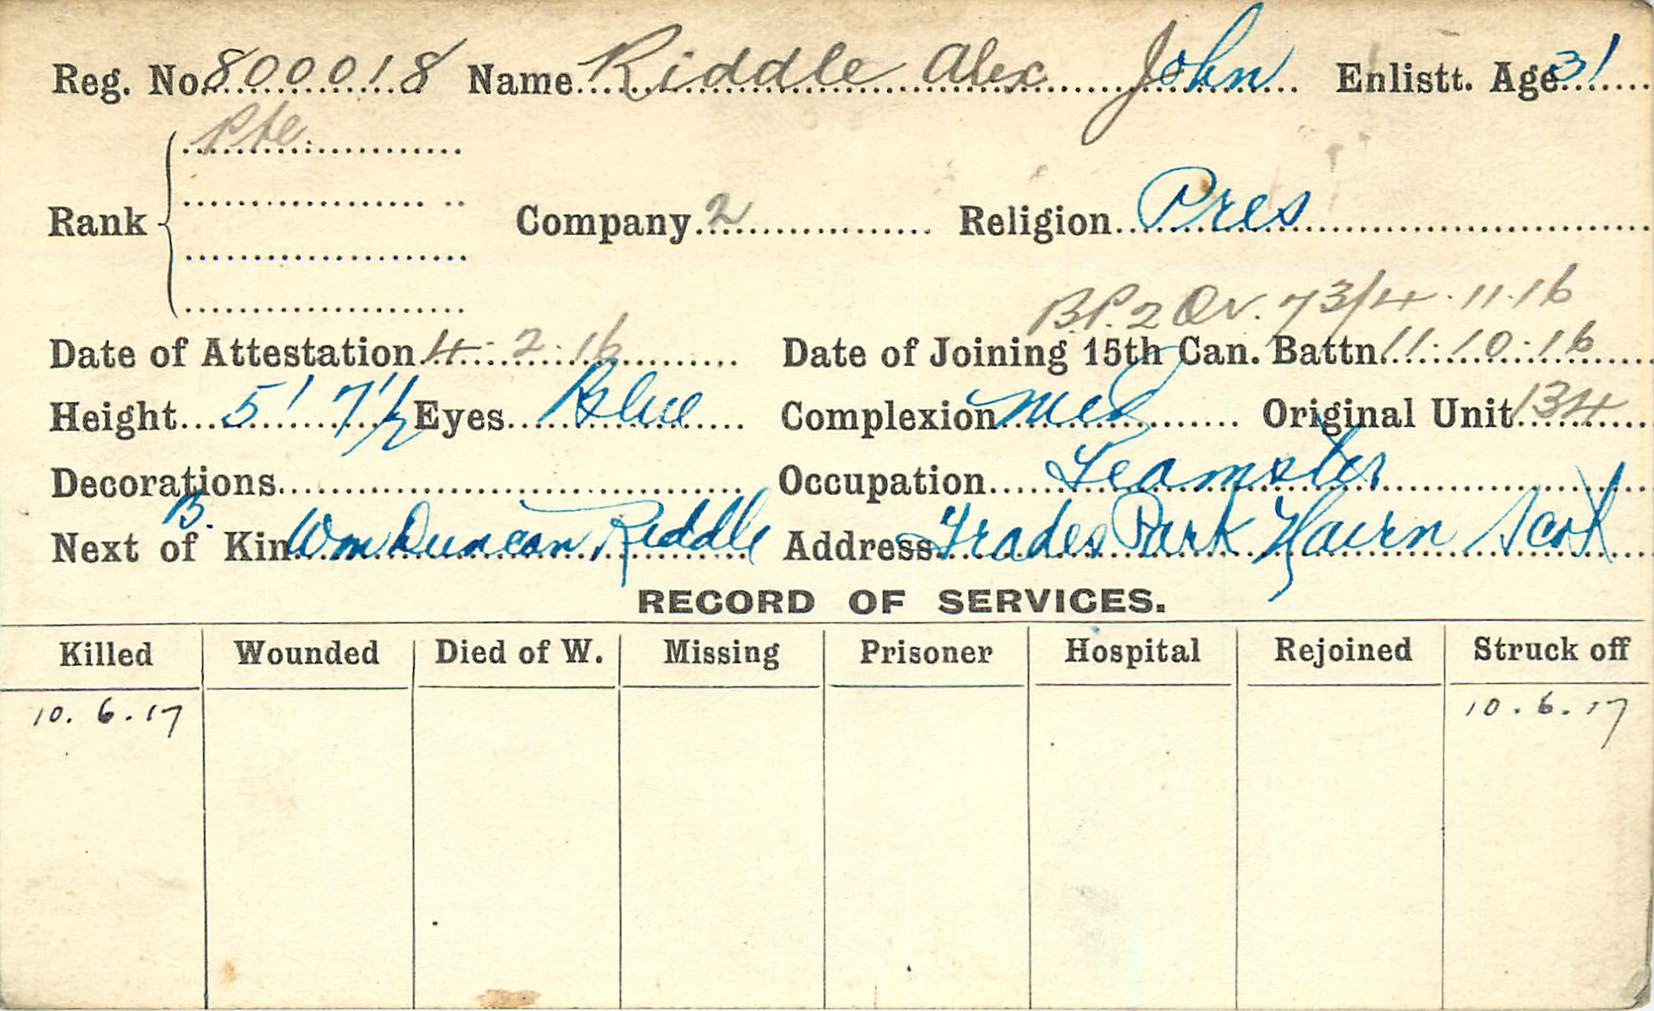 Reg. No. 800018 Name Riddle Alex John Enlistt. Age 31
Pte.
Rank Company 2 Religion Pres
B.P. 2 Or. 73/4.11.16
Date of Attestation 4.2.16 Date of Joining 15th Can. Battn. 11.10.16
Height 5' 7 1/2 Eyes Blue Complexion Med Original Unit 134
Decorations Occupation Teamster
B.
Next of Kin Wm Duncan Riddle Address Trades Park Nairn Scot
RECORD OF SERVICES.
Killed Wounded Died of W. Missing Prisoner Hospital Rejoined Struck off
10.6.17 10.6.17